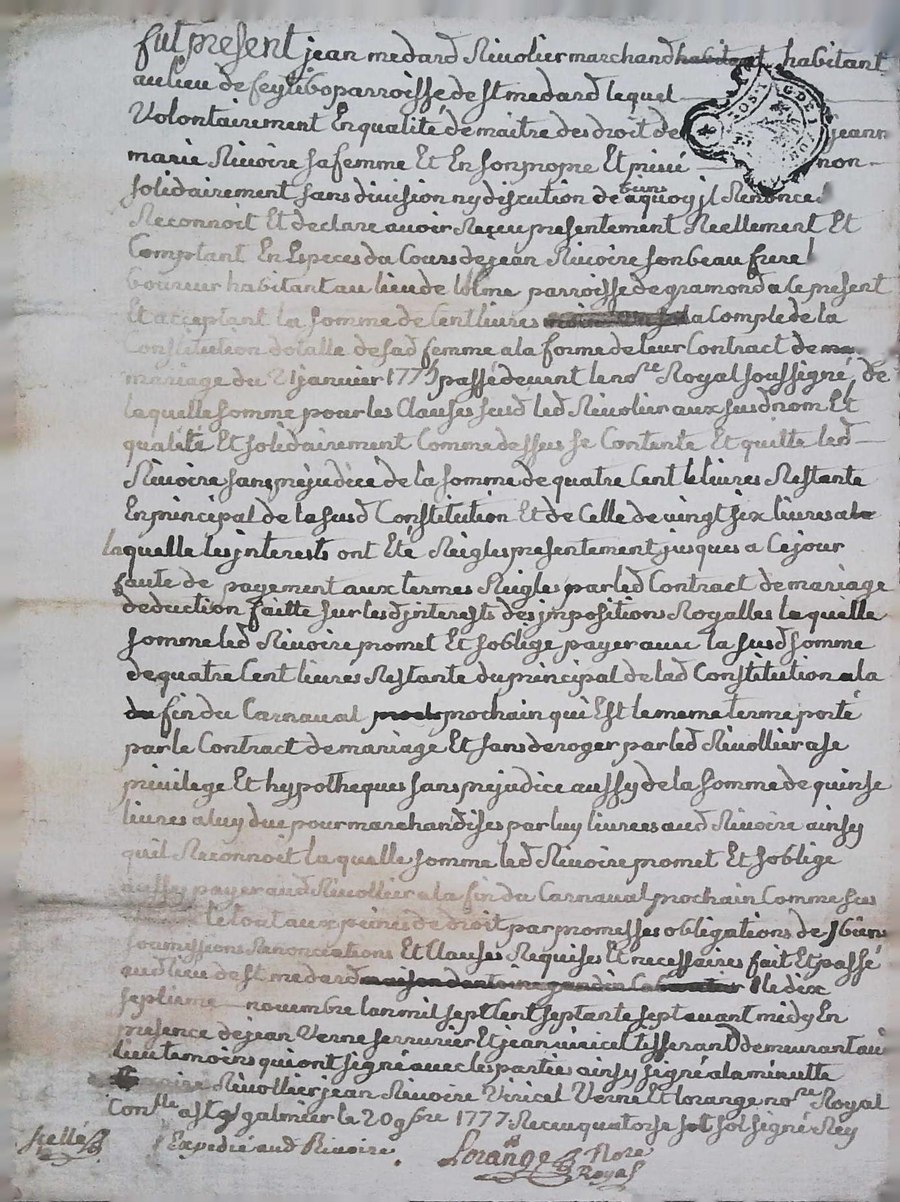 fut present jean medard Rivolier marchand habitant habitant
au lieu de feylibo parroisse de st medard lequel
Volontairement En qualité de maitre des droit de jeann
marie Rivoire sa femme Et En son propre Et privé non
solidairement sans division ny discution de biens aquoy jl Renonce
Reconnoit Et declare avoir Reçeu presentement Reellement Et
Comptant En Especes du Cours de jean Rivoire son beau frere
habitant au lieu de parroisse de gramond a Ce present
Et acceptant la somme de Cent livres a Comple de la
Constitution dotalle de sad femme a la forme de leur Contract de
mariage du 21 janvier 1775 passé devent le nore Royal soussigné, de
laquelle somme pour les Clauses susd led Rivolier aux susd nom Et
qualité Et solidairement Comme dessus se Contente Et quitte led
Rivoire sans prejudice de la somme de quatre Cent livres Restante
En principal de la susd Constitution Et de Celle de vingt six livres a
laquelle les jnterests ont Eté Reigles presentement jusques a Ce jour
faute de payement aux termes Reigles par led Contract de mariage
deduction faitte sur lesd jnterests des jmpositions Royalles laquelle
somme led Rivoire promet Et soblige payer avec la susd somme
de quatre Cent livres Restante du principal de lad Constitution a la
du fin du Carnaval proch prochain qui Est le meme terme porté
par le Contract de mariage Et sans deroger par led Rivollier a se
privilege Et hypotheques sans prejudice aussy de la somme de quinse
livres a luy due pour marchandises par luy livrees aud Rivoire ainsy
quil Reconnoit laquelle somme led Rivoire promet Et soblige
aussy payer aud Rivollier a la fin du Carnaval prochain Comme sus
le tout aux peines de droit par promesses obligations de biens
soumissions Renonciations Et Clauses Requises Et necessaires fait Et passé
aud lieu de st medard maison dantoine gaudin le dix
septieme novembre lan mil sept Cent septante sept avant midy En
presence de jean Verne serrurier Et jean viricel tisserand demeurant au
lieu temoins qui ont signé avec les partie ainsy signé a la minutte
Rivollier jean Rivoire Viricel Verne Et lorange nore Royal
Conlle a st galmier le 20 9bre 1777. Receu quatorse sol signé Rey
scellé Expedié aud Rivoire. Lorange Nore
Royal